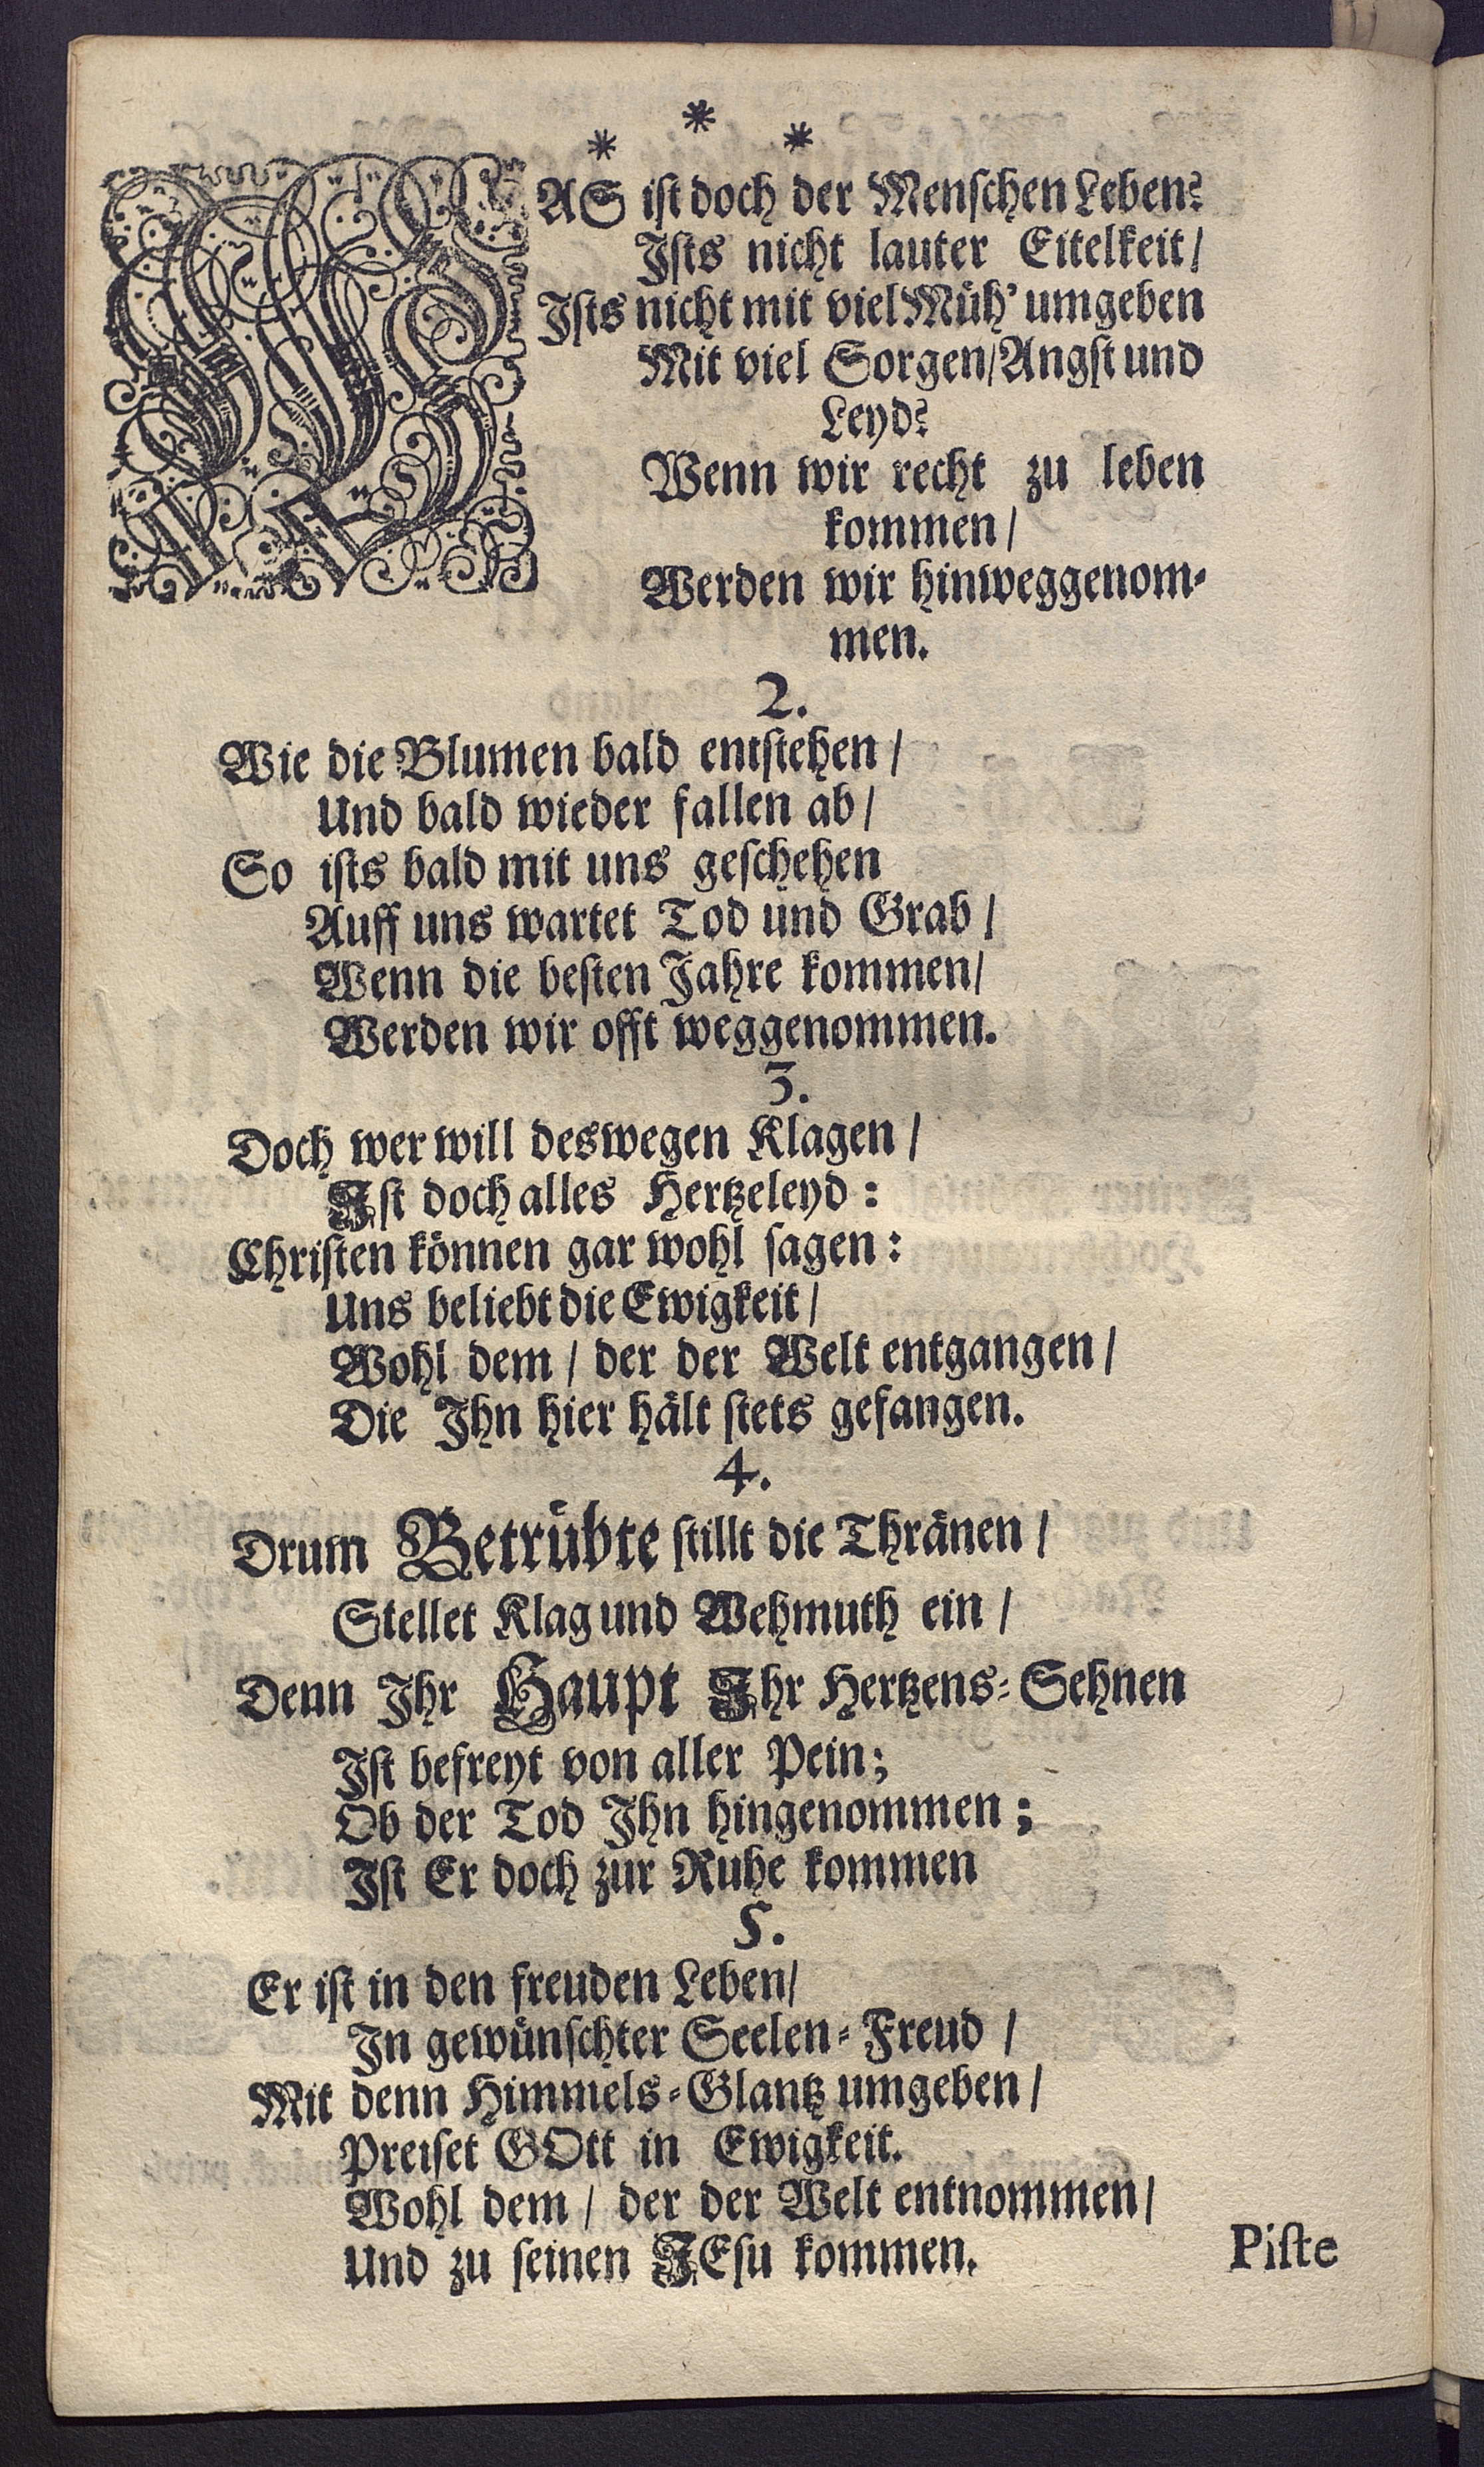 * * *
WAS ist doch der Menschen Leben?
Ists nicht lauter Eitelkeit/
Ists nicht mit viel Müh' umgeben
Mit viel Sorgen/Angst und
Leyd?
Wenn wir recht zu leben
kommen/
Werden wir hinweggenom-
men.
2.
Wie die Blumen bald entstehen/
Und bald wieder fallen ab/
So ists bald mit uns geschehen
Auff uns wartet Tod und Grab/
Wenn die besten Jahre kommen/
Werden wir offt weggenommen.
3.
Doch wer will deswegen Klagen/
Ist doch alles Hertzeleyd:
Christen können gar wohl sagen:
Uns beliebt die Ewigkeit/
Wohl dem/ der der Welt entgangen/
Die Ihn hier hält stets gefangen.
4.
Drum Betrübte stillt die Thränen/
Stellet Klag und Wehmuth ein/
Denn Ihr Haupt Ihr Hertzens-Sehnen
Ist befreyt von aller Pein;
Ob der Tod Ihn hingenommen;
Ist Er doch zur Ruhe kommen
5.
Er ist in den freuden Leben/
In gewünschter Seelen-Freud/
Mit denn Himmels-Glantz umgeben/
Preiset GOtt in Ewigkeit.
Wohl dem/ der der Welt entnommen/
Und zu seinen JEsu kommen.
Piste